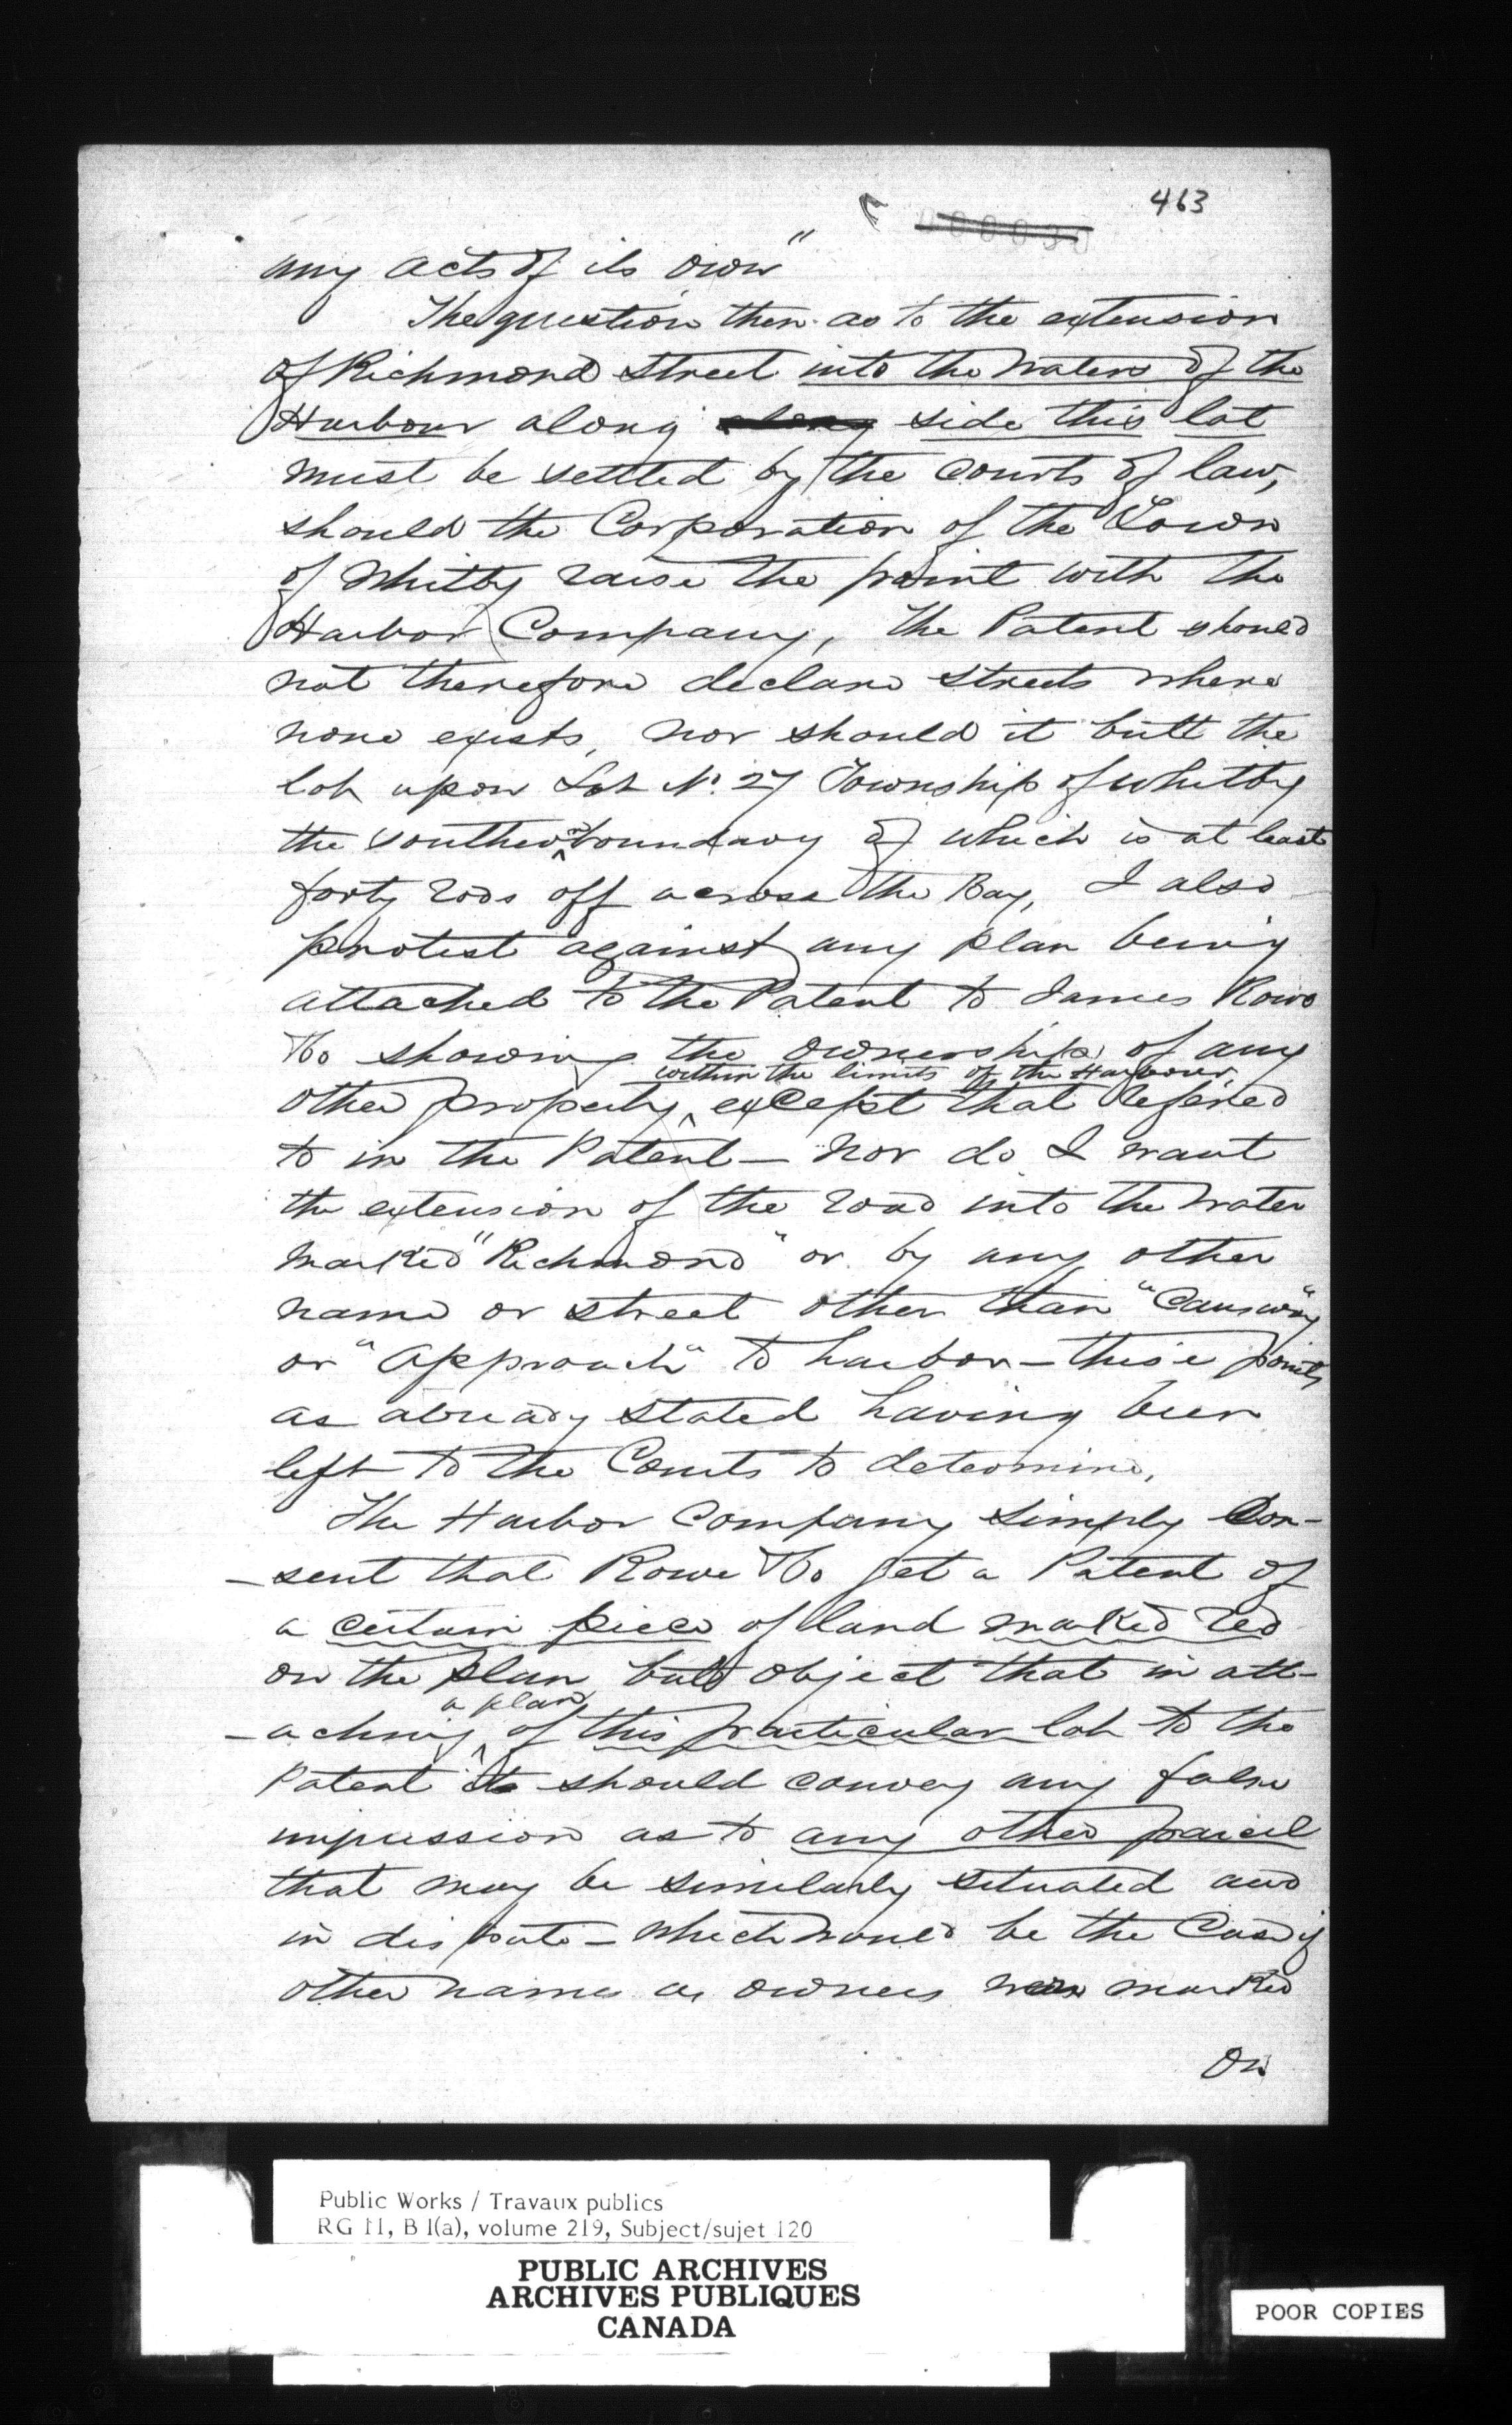 463
any acts of its own"
The question then as to the extension
of Richmond Street into the waters of the
Harbour along along side this lot
must be settled by the courts of law,
should the Corporation of the Town
of Whitby raise the point with the
Harbor Company, the Patent should
not therefore declare streets where
none exists, nor should it butt the
lot upon Lot No. 27 Township of Whitby
the southern boundary of which is at least
forty rods off across the Bay, I also
protest against any plan being
attached to the Patent to James Rowe
&Co showing the ownership of any
within the limits of the Harbour
other property except that refered
to in the Patent — nor do I want
the extension of the road into the water
marked "Richmond" or by any other
name or street other than "Causway"
or "Approach" to harbor — these points
as already stated having been
left to the Courts to determine.
The Harbor Company simply Con-
-sent that Rowe &Co get a Patent of
a certain piece of land marked red
on the plan but object that in att-
a plan
-aching of this particular lot to the
Patent it should convey any false
impression as to any other parcel
that may be similarly situated and
in dispute — which would be the Case if
other names as owners were marked
On
Public Works / Travaux publics
RG 11, B 1(a), volume 219, Subject/sujet 120
PUBLIC ARCHIVES
ARCHIVES PUBLIQUES
CANADA
POOR COPIES